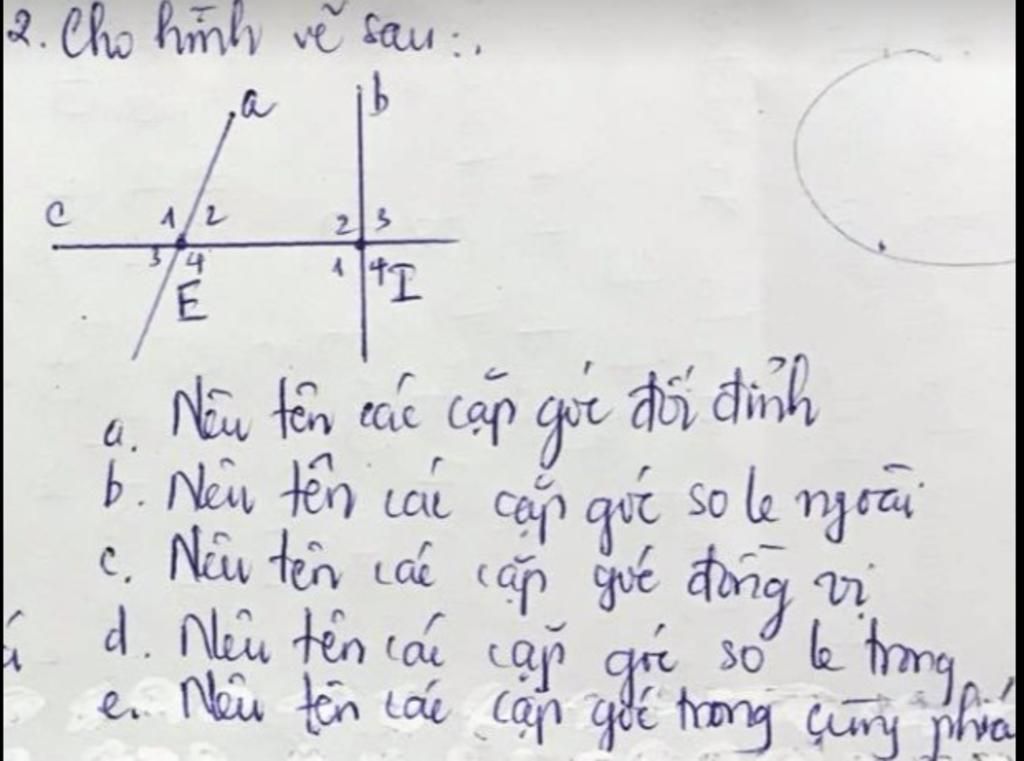 2. Cho hình vẽ sau:.
a
b
c
1 2
2 3
3 4
1 4
E
I
a. Nêu tên các cặp góc đối đỉnh
b. Nêu tên các cặp góc so le ngoài
c. Nêu tên các cặp góc đồng vị
d. Nêu tên các cặp góc so le trong
e. Nêu tên các cặp góc trong cùng phía